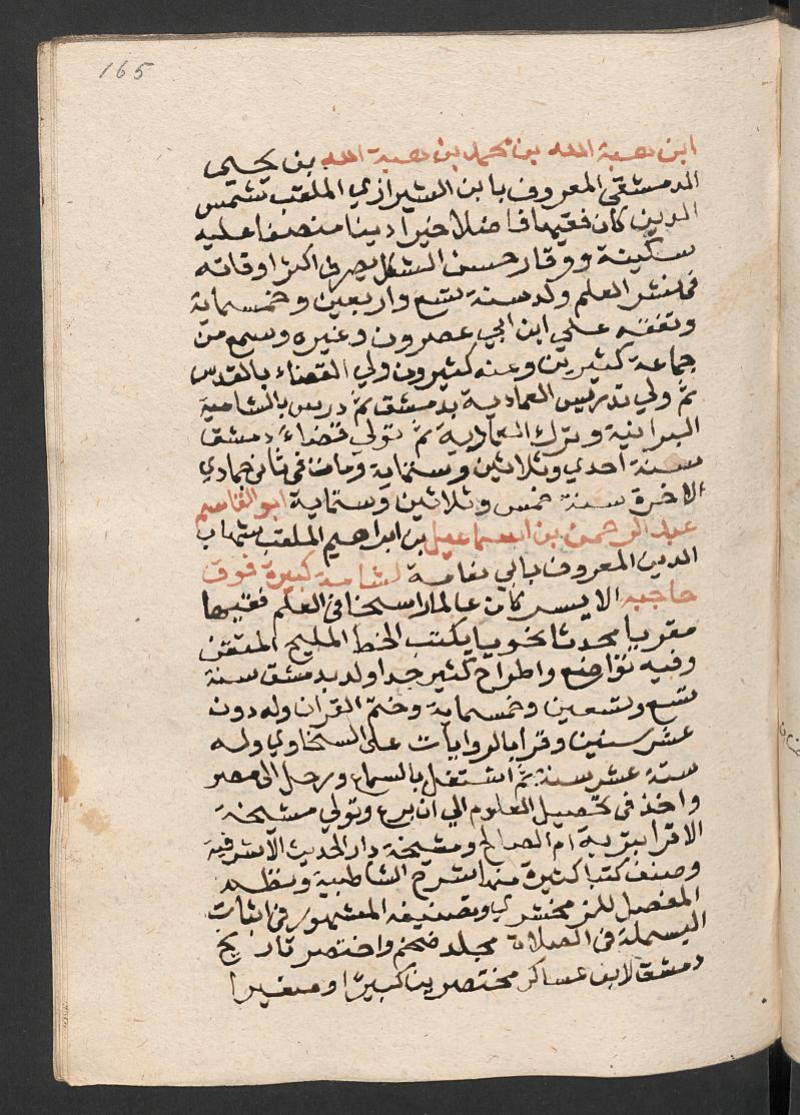 165
ابن هبة الله بن محمد بن هبة الله بن يحيى
الدمشقى المعروف بابن الشيرازي الملقب بشمس
الدين كان فقيها فاضلا خيرا دينا منصفا عليه
سكينة ووقار حسن الشكل يصرف اكثر اوقاته
فى نشر العلم ولد سنة تسع واربعين وخمسماية
وتفقه على ابن ابي عصرون وغيره وسمع من
جماعة كثيرين وعنه كثيرون ولي القضاء بالقدس
ثم ولي تدريس العمادية بدمشق ثم درس بالشامية
البرانية وترك العمادية ثم تولي قضاء دمشق
سنة احدي وثلاثين وستماية ومات فى ثانى جمادي
الاخرة سنة خمس وثلاثين وستماية ابو القاسم
عبد الرحمن بن اسماعيل بن ابراهيم الملقب شهاب
الدين المعروف بابي شامة لشامة كبيرة فوق
حاجبه الايسر كان عالما راسخا فى العلم فقيها
مقريا محدثا نحويا يكتب الخط المليح المتقن
وفيه تواضع واطراح كثير جدا ولد بدمشق سنة
تسع وتسعين وخمسماية وختم القران وله دون
عشر سنين وقرا بالروايات على السخاوي وله
ستة عشر سنة ثم اشتغل بالسماع ورحل الى مصر
واخذ فى تحصيل العلوم الي ان برع وتولي مشيخة
الاقرا بتربة ام الصالح ومشيخة دار الحديث الاشرفية
وصنف كتبا كثيرة منها شرح الشاطبية ونظم
المفصل للزمخشري وتصنيفه المشهور فى اثبات
البسملة فى الصلاة مجلد ضخم واختصر تاريخ
دمشق لابن عساكر مختصرين كبيرا وصغيرا